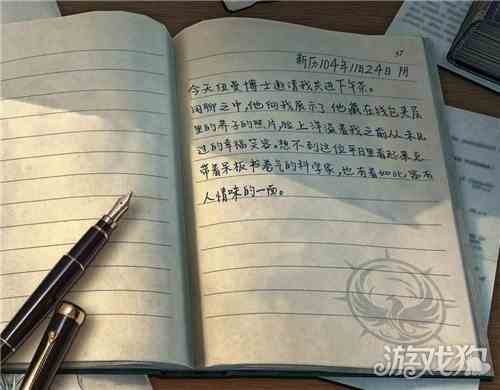 57
新历104年11月24日 阴
今天纽曼博士邀请我共进下午茶。
闲聊之中，他向我展示了他藏在钱包夹层
里的养子的照片，脸上洋溢着我之前从未见
过的幸福笑容。想不到这位平日里看起来总
带着呆板书卷气的科学家，也有着如此富有
人情味的一面。
游戏狗